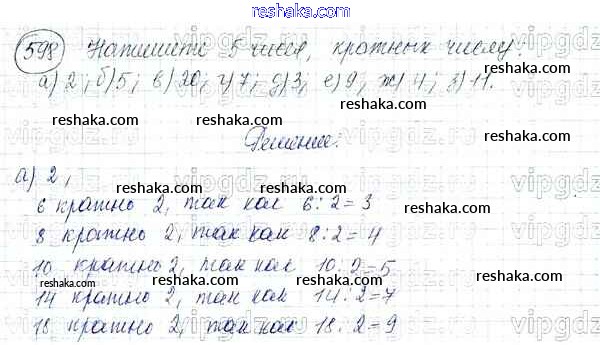 reshaka.com
598 Напишите 5 чисел, кратных числу:
а) 2; б) 5; в) 20; г) 7; д) 3; е) 9; ж) 4; з) 11.
reshaka.com
Решение:
reshaka.com
а) 2,
reshaka.com
6 кратно 2, так как 6:2=3
reshaka.com
8 кратно 2, так как 8:2=4
reshaka.com
10 кратно 2, так как 10:2=5
reshaka.com
14 кратно 2, так как 14:2=7
reshaka.com
18 кратно 2, так как 18:2=9
vipgdz.com